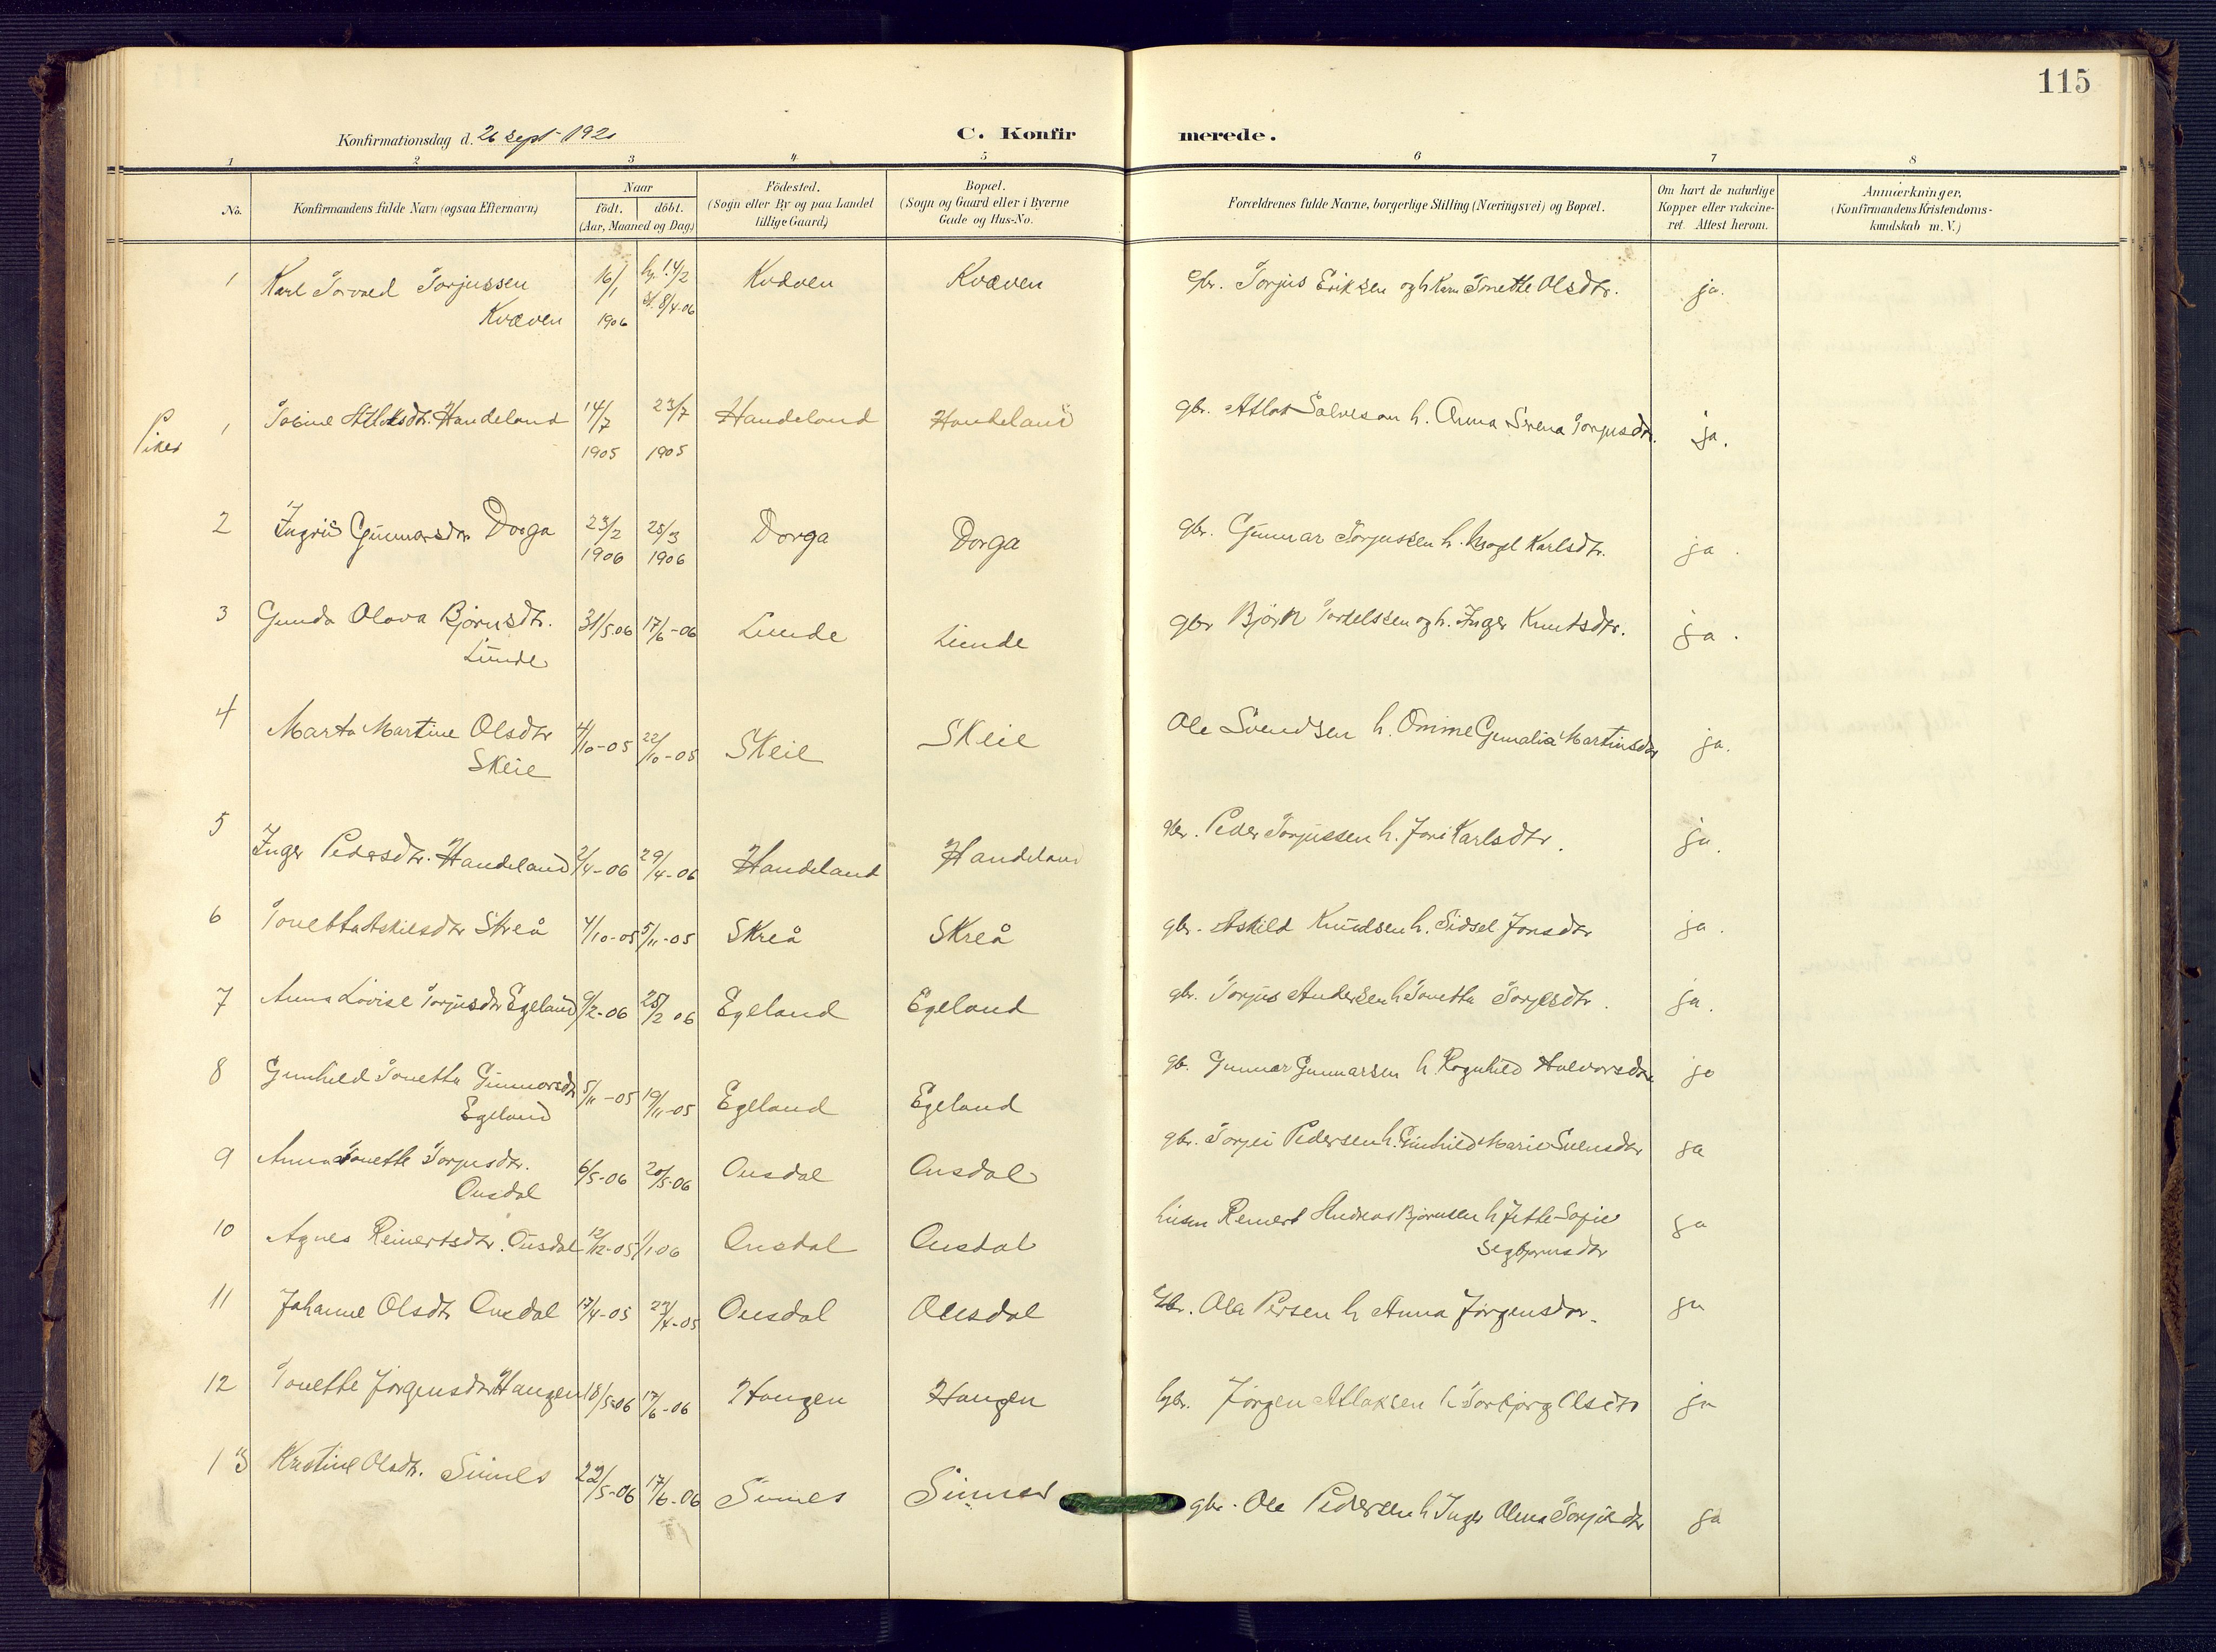 115
Konfirmationsdag d. 26 sept 1920
C. Konfirmerede.
1 2 3 4 5 6 7 8
No.
Konfirmandens fulde Navn (ogsaa Efternavn)
Naar
födt. döbt.
(Aar, Maaned og Dag)
Födested.
(Sogn eller By og paa Landet
tillige Gaard)
Bopæl.
(Sogn og Gaard eller i Byerne
Gade og Hus-No.
Forældrenes fulde Navne, borgerlige Stilling (Næringsvei) og Bopæl.
Om havt de naturlige
Kopper eller vakcine-
ret. Attest herom.
Anmærkninger,
(Konfirmandens Kristendoms-
kundskab m. V.)
1 Karl Torvald Torjussen Kvæven 16/1 1906 14/2 8/4-06 Kvæven Kvæven gbr. Torjus Eriksen og h Tonette Olsdtr. ja.
Piker
1 Tobine Atlaksdtr. Handeland 14/7 1905 23/7 1905 Handeland Handeland gbr. Atlak Salvesen h. Anna Serena Torjusdtr. ja.
2 Ingrid Gunnarsdtr Dorga 23/2 1906 25/3 1906 Dorga Dorga gbr. Gunnar Torjussen h. Karlsdtr. ja.
3 Gunda Olava Bjørnsdtr. Lunde 31/5 06 17/6-06 Lunde Lunde gbr Björn Tortelssen og h. Inger Knutsdtr. ja.
4 Marta Martine Olsdtr Skeie 4/10-05 22/10-05 Skeie Skeie Ole Svendsen h. Omme Gunalia Martinsdtr ja.
5 Inger Pedersdtr. Handeland 2/4-06 29/4-06 Handeland Handeland gbr. Peder Torjussen h. Joni Karlsdtr. ja.
6 Tonetta Askilsdtr Skreå 4/10-05 5/11-05 Skreå Skreå gbr. Askild Knudsen h. Sidsel Jonsdtr ja.
7 Anna Lovise Torjusdtr Egeland 9/2-06 25/2 06 Egeland Egeland gbr. Torjus Andersen h Tonetta Torjesdtr. ja.
8 Gunhild Tonetta Gunnarsdtr Egeland 5/11-05 19/11-05 Egeland Egeland gb. Gunnar Gunnarsen h Ragnhild Halvorsdtr ja
9 Anna Tonette Torjusdtr. Ousdal 6/5-06 20/5-06 Ousdal Ousdal gbr. Torjei Pedersen h. Gunhild Marie Svensdtr ja
10 Agnes Reinertsdtr. Ousdal 12/12-05 1/1 06 Ousdal Ousdal Reinert Andreas Bjørnsen h Jette Sofie Segbjørnsdtr ja
11 Johanne Olsdtr Ousdal 17/4-05 24/4-05 Ousdal Ousdal Gbr. Ola Persen h Anna Jørgensdtr. ja
12 Tonette Jørgensdtr Haugen 18/5-06 17/6-06 Haugen Haugen gbr. Jörgen Atlaksen h Torbjørg Olsdtr ja
13 Kristine Olsdtr. Sinnes 22/5-06 17/6-06 Sinnes Sinnes gbr. Ole Pedersen h Inger Olena Torjusdtr ja